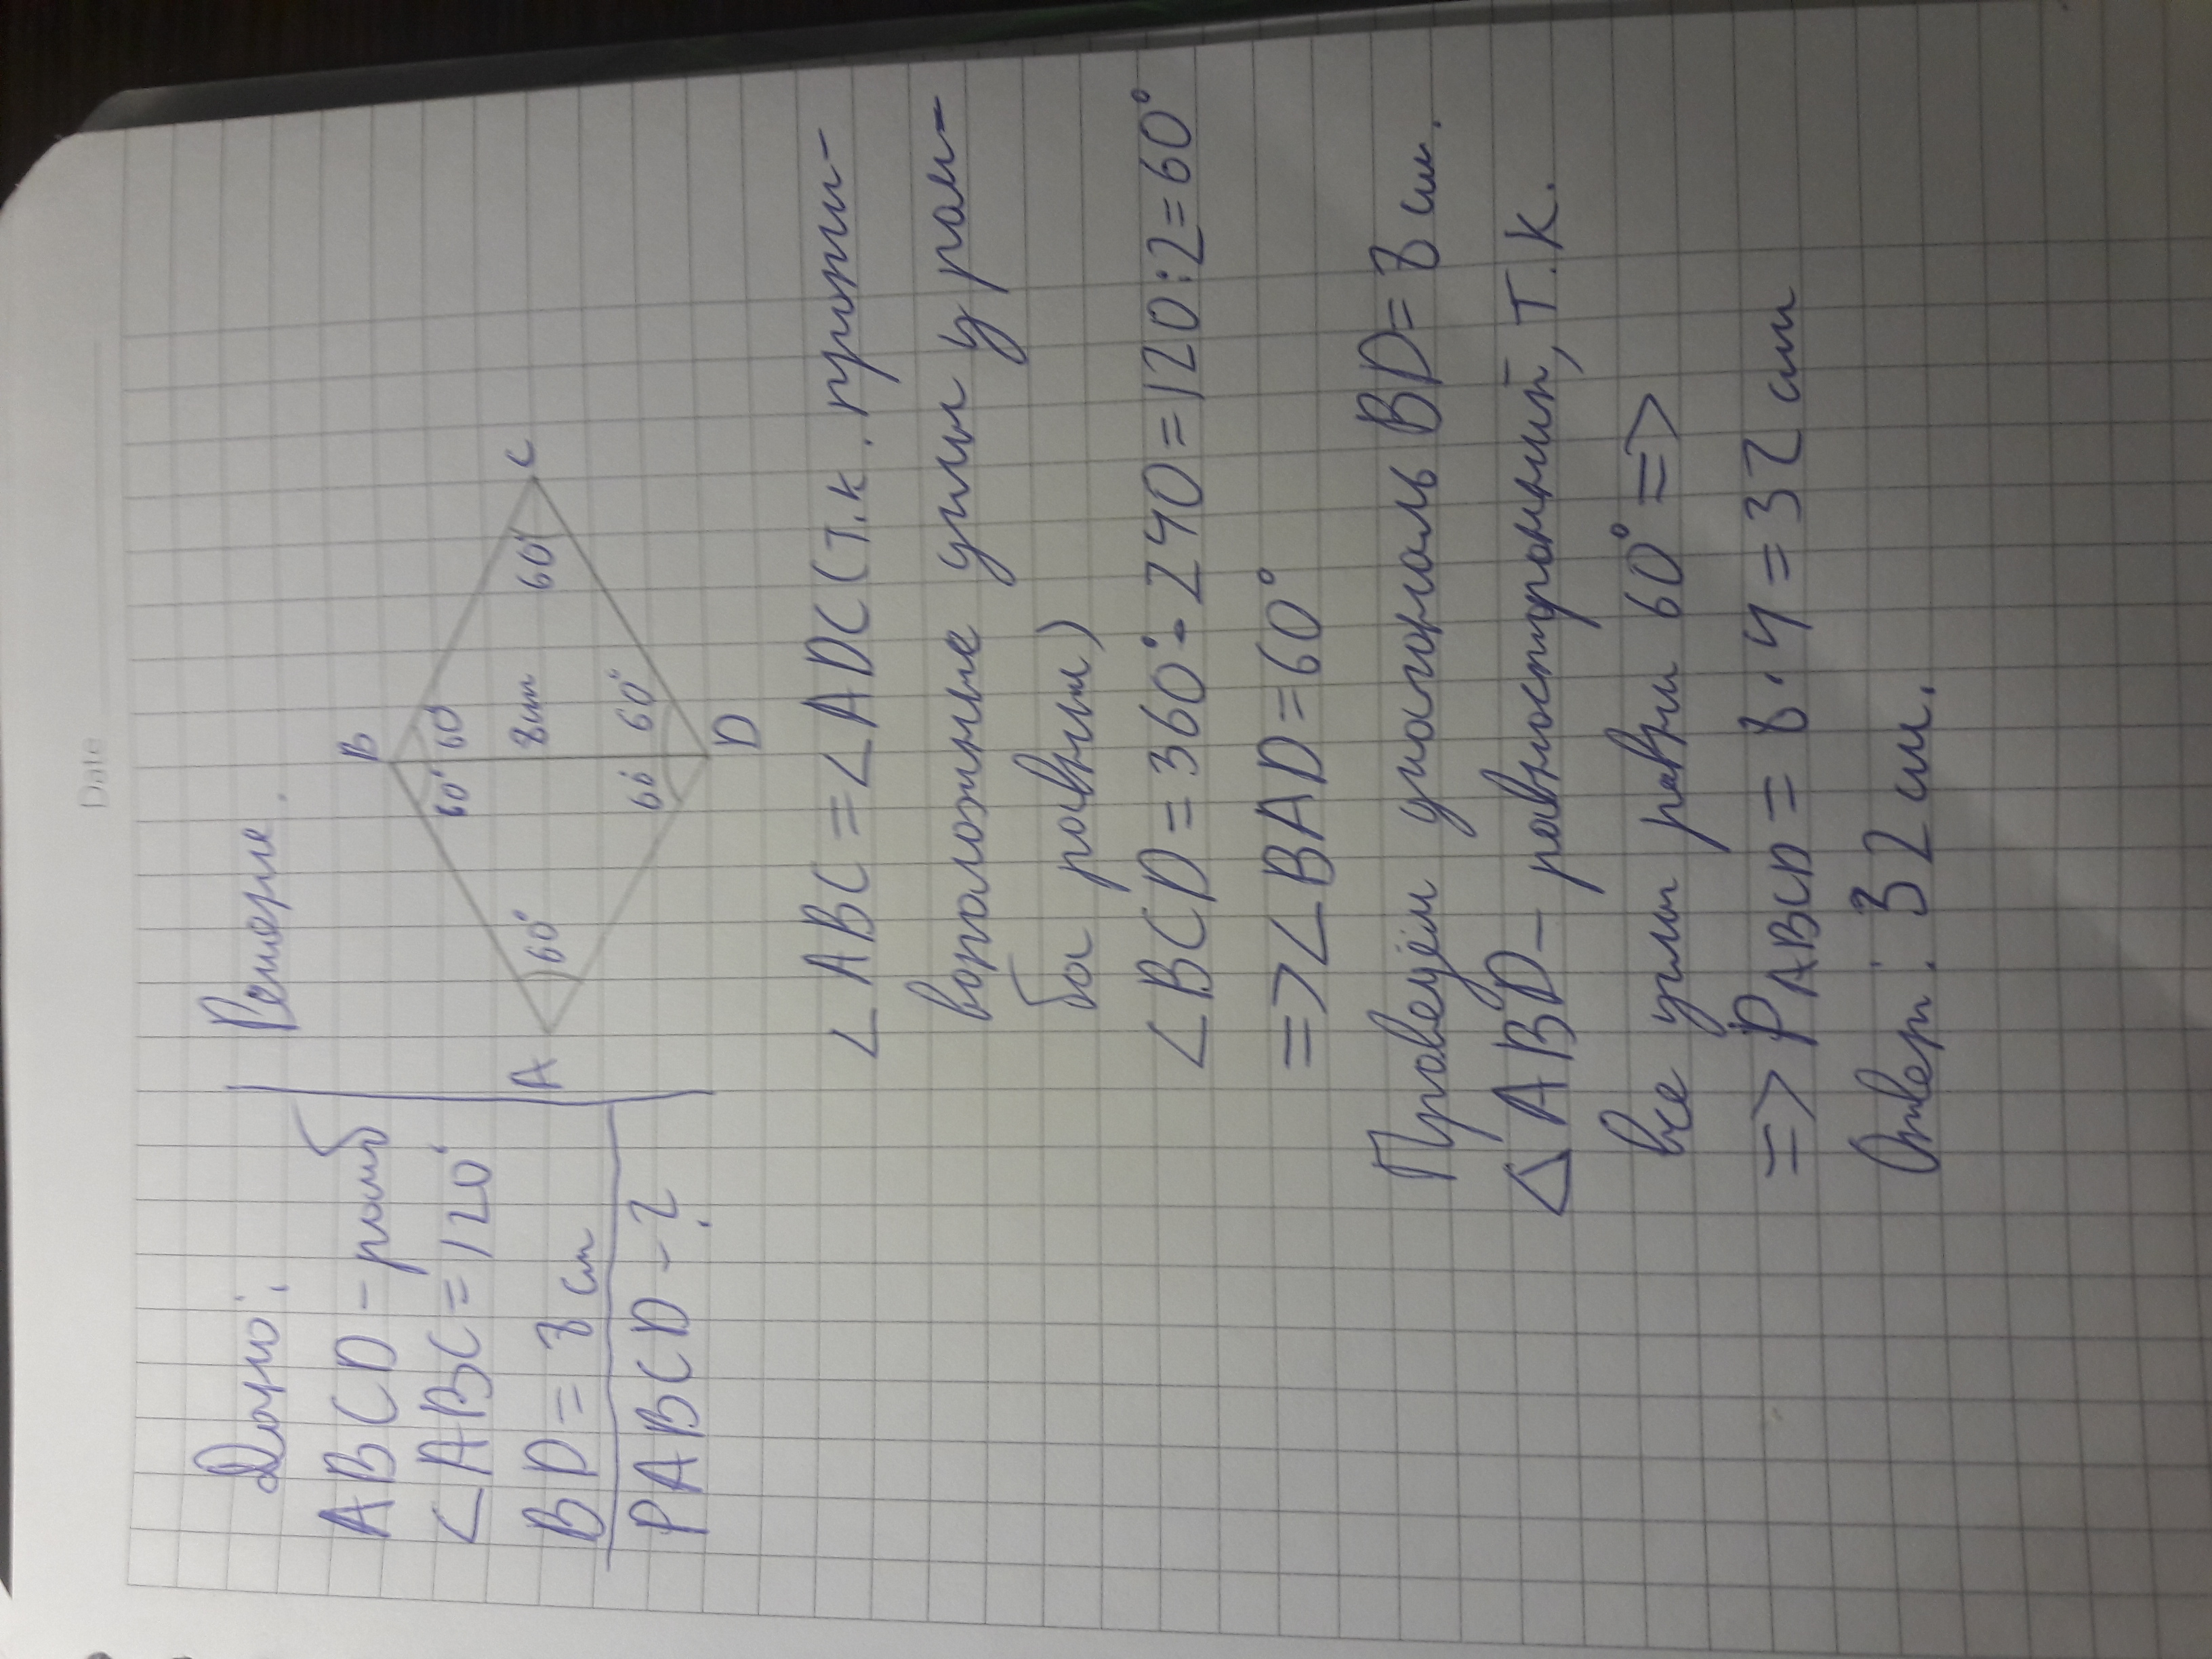 Date
Дано:
ABCD - ромб
<ABC = 120°
BD = 8 см
PABCD - ?
Решение.
B
60° 60°
A 60° 8 см 60° C
60° 60°
D
<ABC = <ADC (т.к. проти-
воположные углы у ром-
ба равны)
<BCD = 360° - 240 = 120:2 = 60°
=> <BAD = 60°
Проведём диагональ BD = 8 см.
△ABD - равносторонний, т.к.
все углы равны 60° =>
=> PABCD = 8·4 = 32 см
Ответ: 32 см.